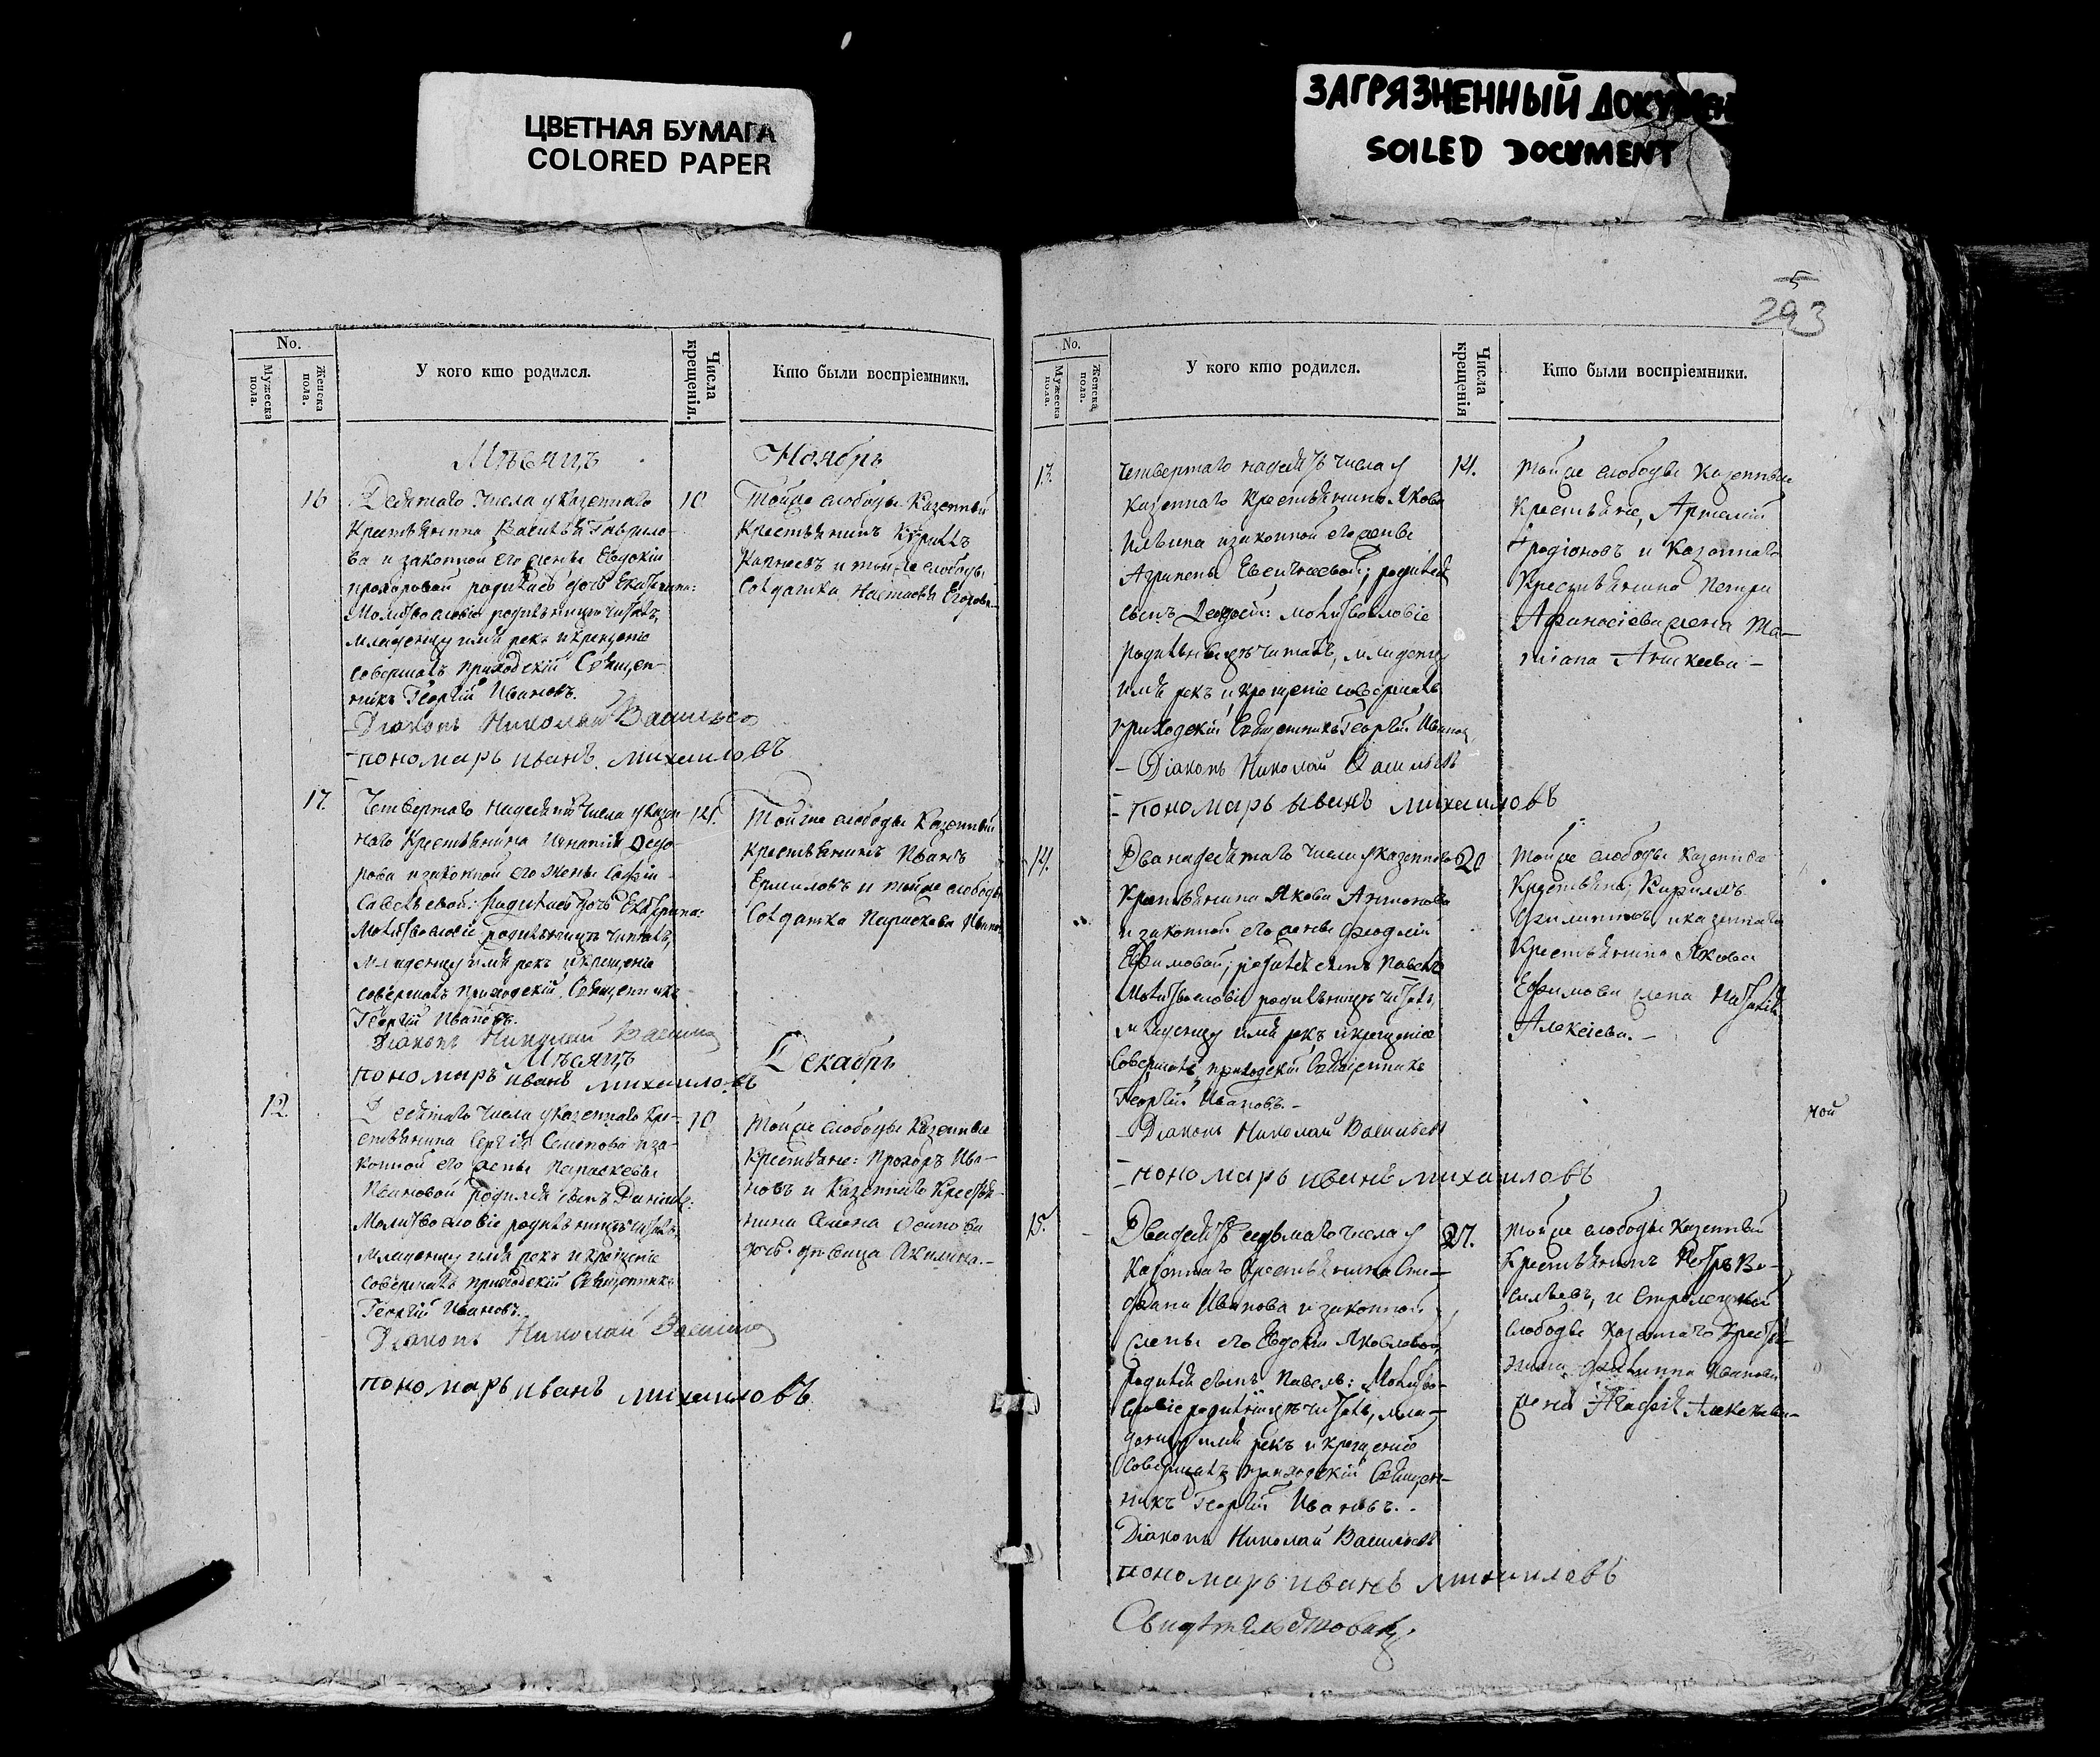 ЦВЕТНАЯ БУМАГА
COLORED PAPER
ЗАГРЯЗНЕННЫЙ ДОКУМЕН
SOILED DOCUMENT
5
293
No.
Мужеска пола.
Женска пола.
У кого кто родился.
Числа крещенія.
Кто были воспріемники.
Мѣсяцъ
Ноябрь
16
Десятаго числа у казеннаго
крестьянина Василья Гаврило-
ва и законной его жены Евдокіи
прохоровой родилась дочь Екатерина:
Молитвословіе родильницѣ читалъ,
младенцу имя рекъ и крещеніе
совершалъ приходскій Священ-
никъ Георгій Ивановъ.
Діаконъ Николай Васильевъ
пономарь иванъ михаиловъ
10
Тойже слободы Казенный
Крестьянинъ
и тойже слободы
Солдатка Настасья Егорова
17.
Четвертаго надесять числа у казен
наго Крестьянина Игнатія Ѳедо-
рова и законной его жены Софіи
Савельевой: родилась дочь Екатерина:
Молитвословіе родильницѣ читалъ,
младенцу имя рекъ и крещеніе
совершалъ приходскій Священникъ
Георгій Ивановъ.
Діаконъ Николай Василье
пономарь иванъ михаиловъ
14.
Тойже слободы Казенный
крестьянинъ Иванъ
Ермиловъ и тойже слободы
Солдатка Параскева Иванов
Мѣсяцъ
Декабрь
12.
Десятаго числа у казеннаго Кре-
стьянина Сергія Семенова и за-
конной его жены Параскевы
Ивановой родился сынъ Даніилъ:
Молитвословіе родильницѣ читалъ,
младенцу имя рекъ и крещеніе
совершалъ приходскій Священникъ
Георгій Ивановъ.
Діаконъ Николай Василье
пономарь иванъ михаиловъ
10
Тойже слободы Казенные
Крестьяне: Прохоръ Ива-
новъ и Казеннаго Крестья-
нина Семена Осипова
дочь дѣвица Акилина.-
No.
Мужеска пола.
Женска пола.
У кого кто родился.
Числа крещенія
Кто были воспріемники.
13.
четвертаго надесять числа у
казеннаго Крестьянина Якова
Ильина и законной его жены
Агрипены Евсигнеевой; родился
сынъ Ѳеодосій: молитвословіе
родильницѣ читалъ, младенцу
имя рекъ и крещеніе совершалъ
приходскій Священникъ Георгій Иванов
- Діаконъ Николай Васильевъ
- пономарь иванъ михаиловъ
14.
тойже слободы казенные
Крестьяне,
Ѳродіоновъ и Казеннаго
Крестьянина Петра
Афанасіева жена Та-
тіана
14.
Дванадесятаго числа у казеннаго
Крестьянина Якова
и законной его жены
Ефимовой; родился сынъ Павелъ
Молитвословіе родильницѣ читалъ,
младенцу имя рекъ и крещеніе
Совершалъ приходскій Священникъ
Георгій Ивановъ. -
- Діаконъ Николай Васильевъ
- пономарь иванъ михаиловъ
20
тойже слободы казенные
Крестьяне; Кириллъ
и казеннаго
Крестьянина Якова
Ефимова жена Наталія
Алексіева. -
15.
Двадесять седьмаго числа у
Казеннаго Крестьянина Сте-
фана Иванова и законной
жены его Евдокіи Яковлевой,
родился сынъ Павелъ: Молитво-
словіе родильницѣ читалъ, мла-
денцу имя рекъ и крещеніе
Совершалъ приходскій Священ-
никъ Георгій Ивановъ. -
Діаконъ Николай Васильевъ
пономарь иванъ михаиловъ
27.
тойже слободы казенный
Крестьянинъ Петръ Ва-
сильевъ, и Стрелецкой
слободы Казеннаго Крестья-
нина Филиппа Иванова
жена Агафія
ной